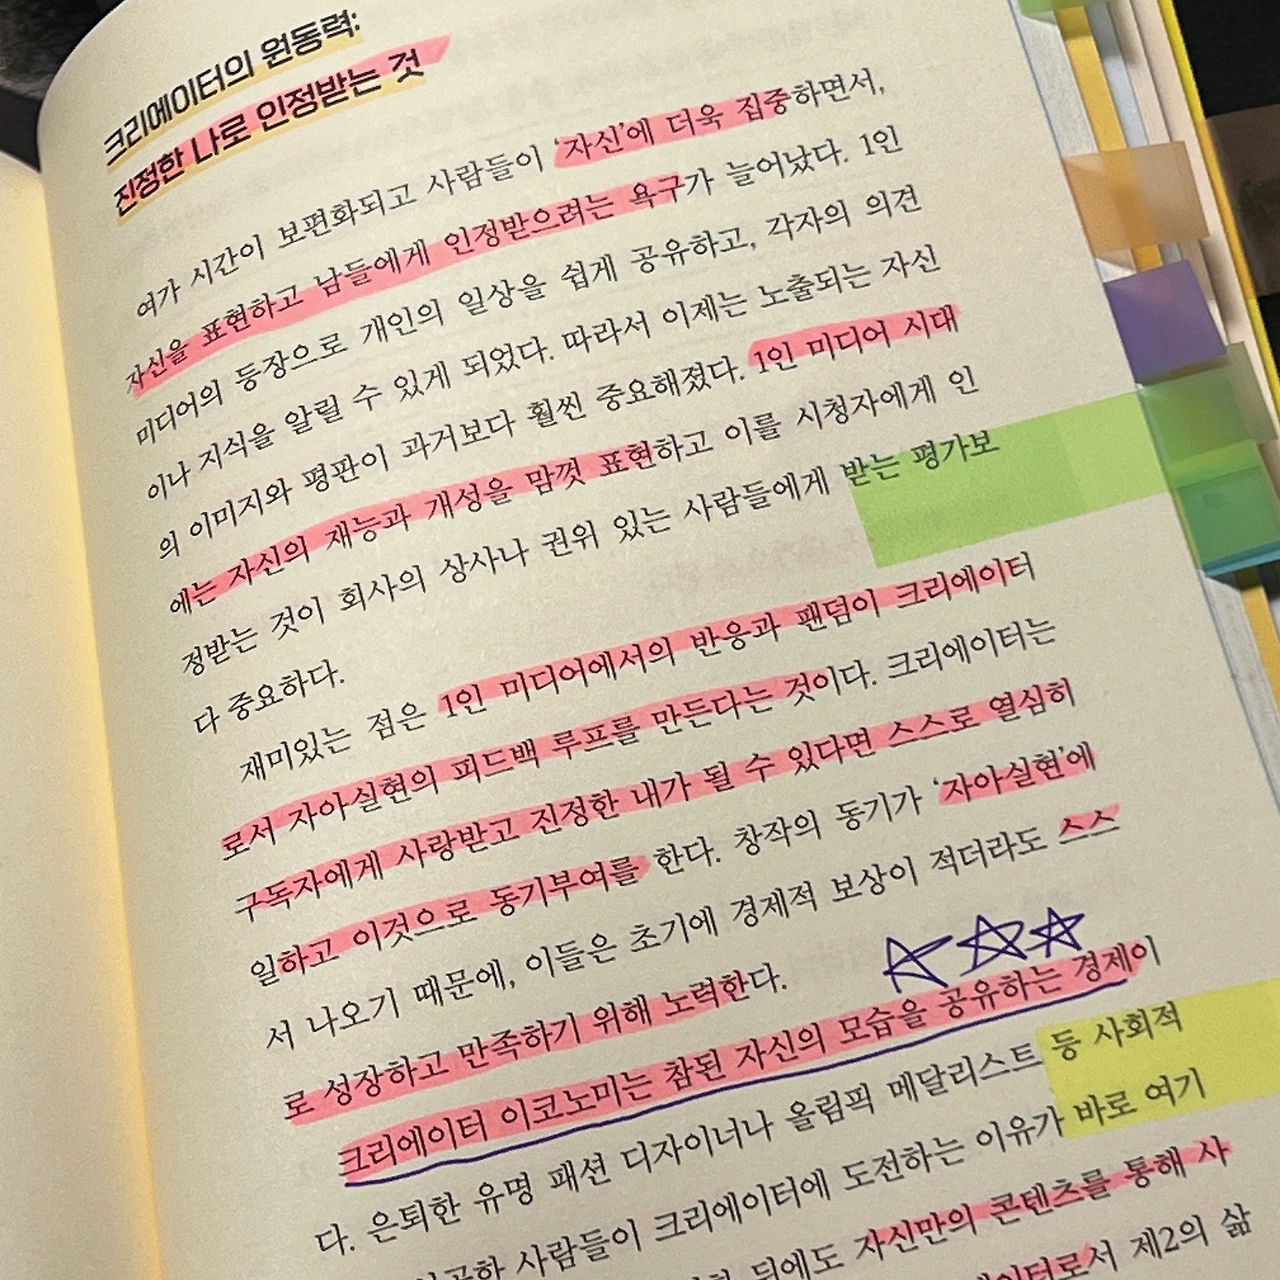 크리에이터의 원동력:
진정한 나로 인정받는 것
여가 시간이 보편화되고 사람들이 ‘자신’에 더욱 집중하면서,
자신을 표현하고 남들에게 인정받으려는 욕구가 늘어났다. 1인
미디어의 등장으로 개인의 일상을 쉽게 공유하고, 각자의 의견
이나 지식을 알릴 수 있게 되었다. 따라서 이제는 노출되는 자신
의 이미지와 평판이 과거보다 훨씬 중요해졌다. 1인 미디어 시대
에는 자신의 재능과 개성을 맘껏 표현하고 이를 시청자에게 인
정받는 것이 회사의 상사나 권위 있는 사람들에게 받는 평가보
다 중요하다.
재미있는 점은 1인 미디어에서의 반응과 팬덤이 크리에이터
로서 자아실현의 피드백 루프를 만든다는 것이다. 크리에이터는
구독자에게 사랑받고 진정한 내가 될 수 있다면 스스로 열심히
일하고 이것으로 동기부여를 한다. 창작의 동기가 ‘자아실현’에
서 나오기 때문에, 이들은 초기에 경제적 보상이 적더라도 스스
로 성장하고 만족하기 위해 노력한다.
크리에이터 이코노미는 참된 자신의 모습을 공유하는 경제이
다. 은퇴한 유명 패션 디자이너나 올림픽 메달리스트 등 사회적
사람들이 크리에이터에 도전하는 이유가 바로 여기
뒤에도 자신만의 콘텐츠를 통해 사
제2의 삶